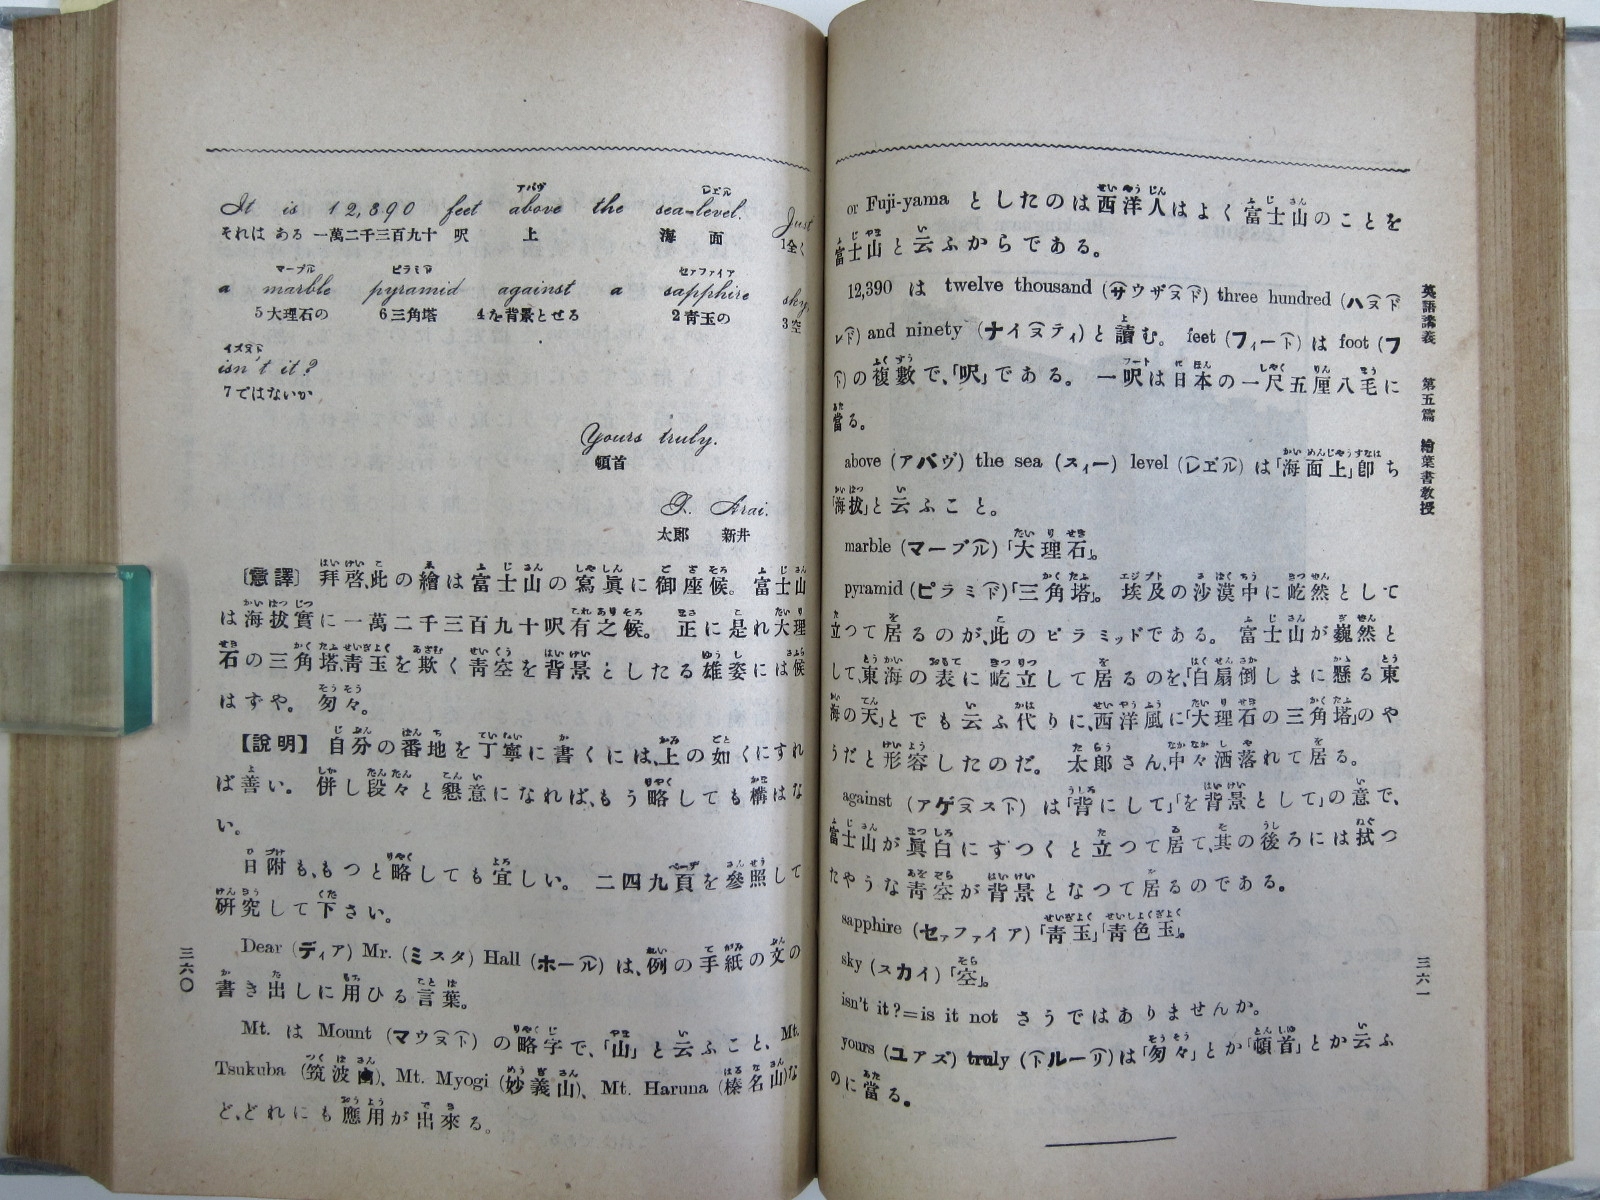 アバヴ レヹル
It is 12,390 feet above the sea-level. Just
それは ある 一萬二千三百九十 呎 上 海面 1全く
マーブル ピラミド セァファイア
a marble pyramid against a sapphire sky,
5大理石の 6三角塔 4を背景とせる 2靑玉の 3空
イズヌト
isn't it?
7ではないか
Yours truly.
頓首
T. Arai.
太郎 新井
〔意譯〕 拜啓、此の繪は富士山の寫眞に御座候。 富士山
は海拔實に一萬二千三百九十呎有之候。 正に是れ大理
石の三角塔、靑玉を欺く靑空を背景としたる雄姿には候
はずや。 匆々。
【說明】 自分の番地を丁寧に書くには、上の如くにすれ
ば善い。 併し段々と懇意になれば、もう略しても構はな
い。
日附も、もつと略しても宜しい。 二四九頁を參照して
硏究して下さい。
Dear (ディア) Mr. (ミスタ) Hall (ホール) は、例の手紙の文の
書き出しに用ひる言葉。
Mt. は Mount (マウヌト) の略字で、「山」と云ふこと、Mt.
Tsukuba (筑波山)、Mt. Myogi (妙義山)、Mt. Haruna (榛名山)な
ど、どれにも應用が出來る。
三六〇
or Fuji-yama としたのは西洋人はよく富士山のことを
富士山と云ふからである。
12,390 は twelve thousand (サウザヌド) three hundred (ハヌド
レド) and ninety (ナイヌティ)と讀む。 feet (フィート) は foot (フ
ト)の複數で、「呎」である。 一呎は日本の一尺五厘八毛に
當る。
above (アバヴ) the sea (スィー) level (レヹル) は「海面上」卽ち
「海拔」と云ふこと。
marble (マーブル)「大理石」。
pyramid (ピラミド)「三角塔」。 埃及の沙漠中に屹然として
立つて居るのが、此のピラミッドである。 富士山が巍然と
して、東海の表に屹立して居るのを、「白扇倒しまに懸る東
海の天」とでも云ふ代りに、西洋風に「大理石の三角塔」のや
うだと形容したのだ。 太郎さん、中々洒落れて居る。
against (アゲヌスト) は「背にして」「を背景として」の意で、
富士山が眞白にずつくと立つて居て、其の後ろには拭つ
たやうな靑空が背景となつて居るのである。
sapphire (セァファイア)「靑玉」「靑色玉」。
sky (スカイ)「空」。
isn't it?=is it not さうではありませんか。
yours (ユアズ) truly (トルーリ)は「匆々」とか「頓首」とか云ふ
のに當る。
英語講義 第五篇 繪葉書敎授
三六一